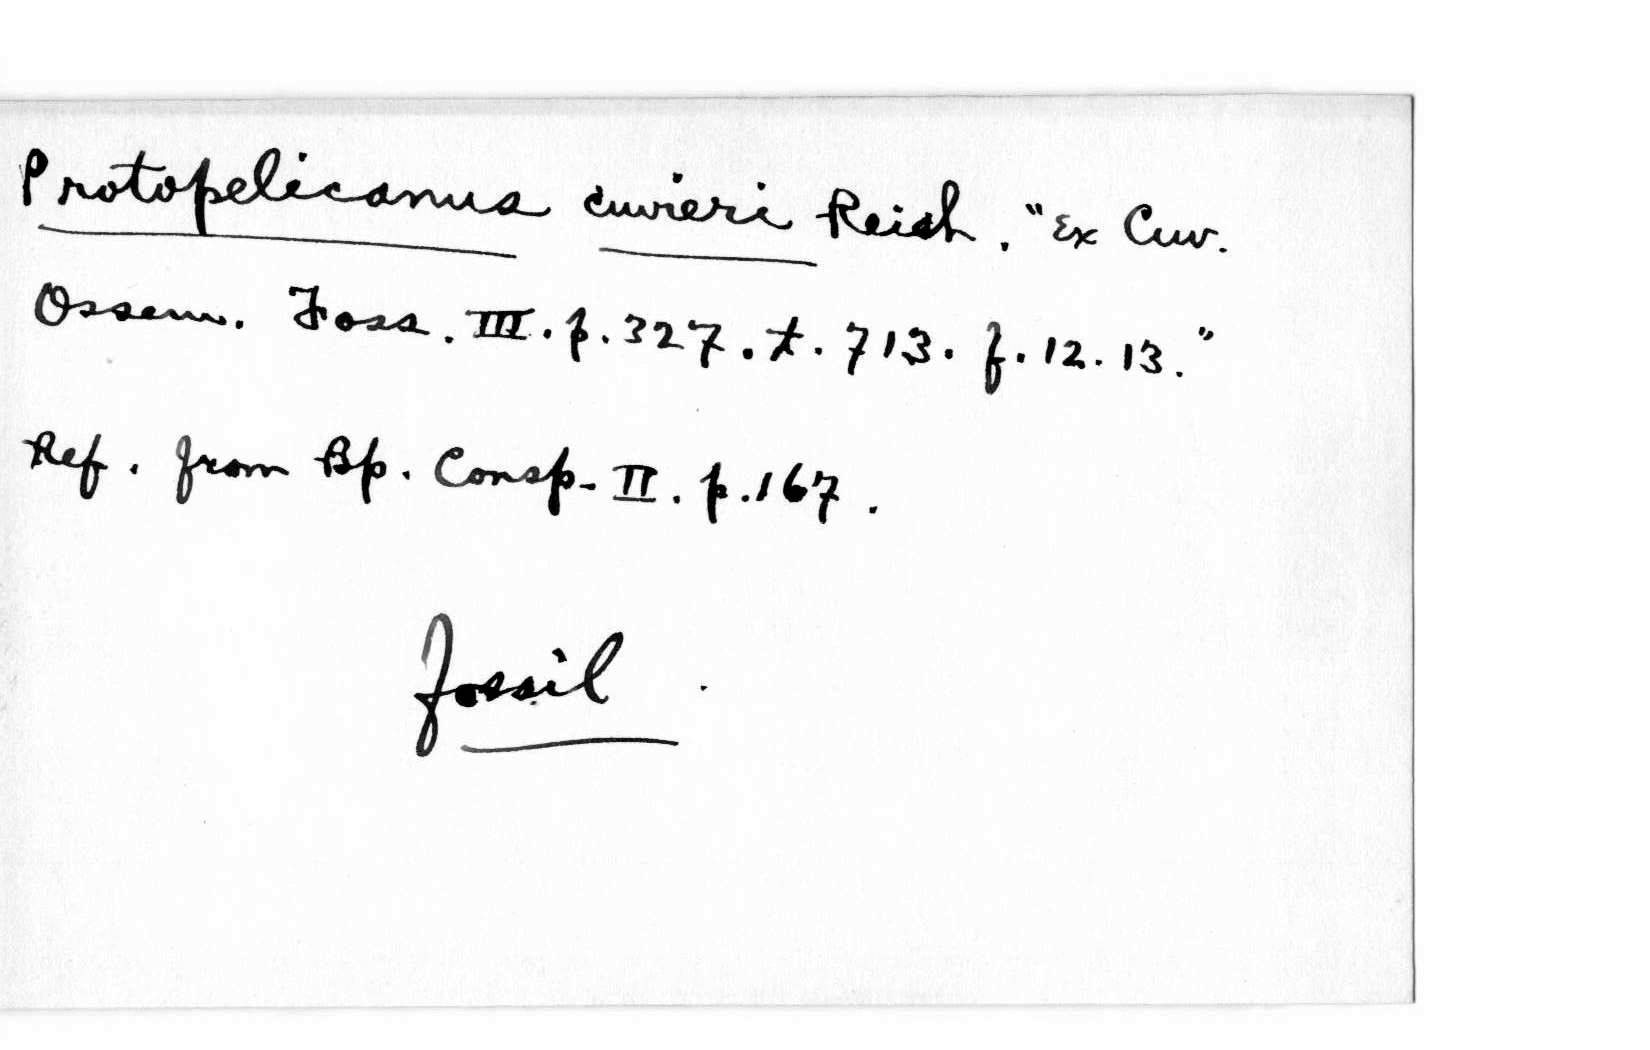 Protopelicanus cuvieri Reich. "Ex Cuv.
Ossem. Foss. III. p. 327. t. 713. f. 12. 13."
Ref. from Bp. Consp. II. p. 167.
fossil